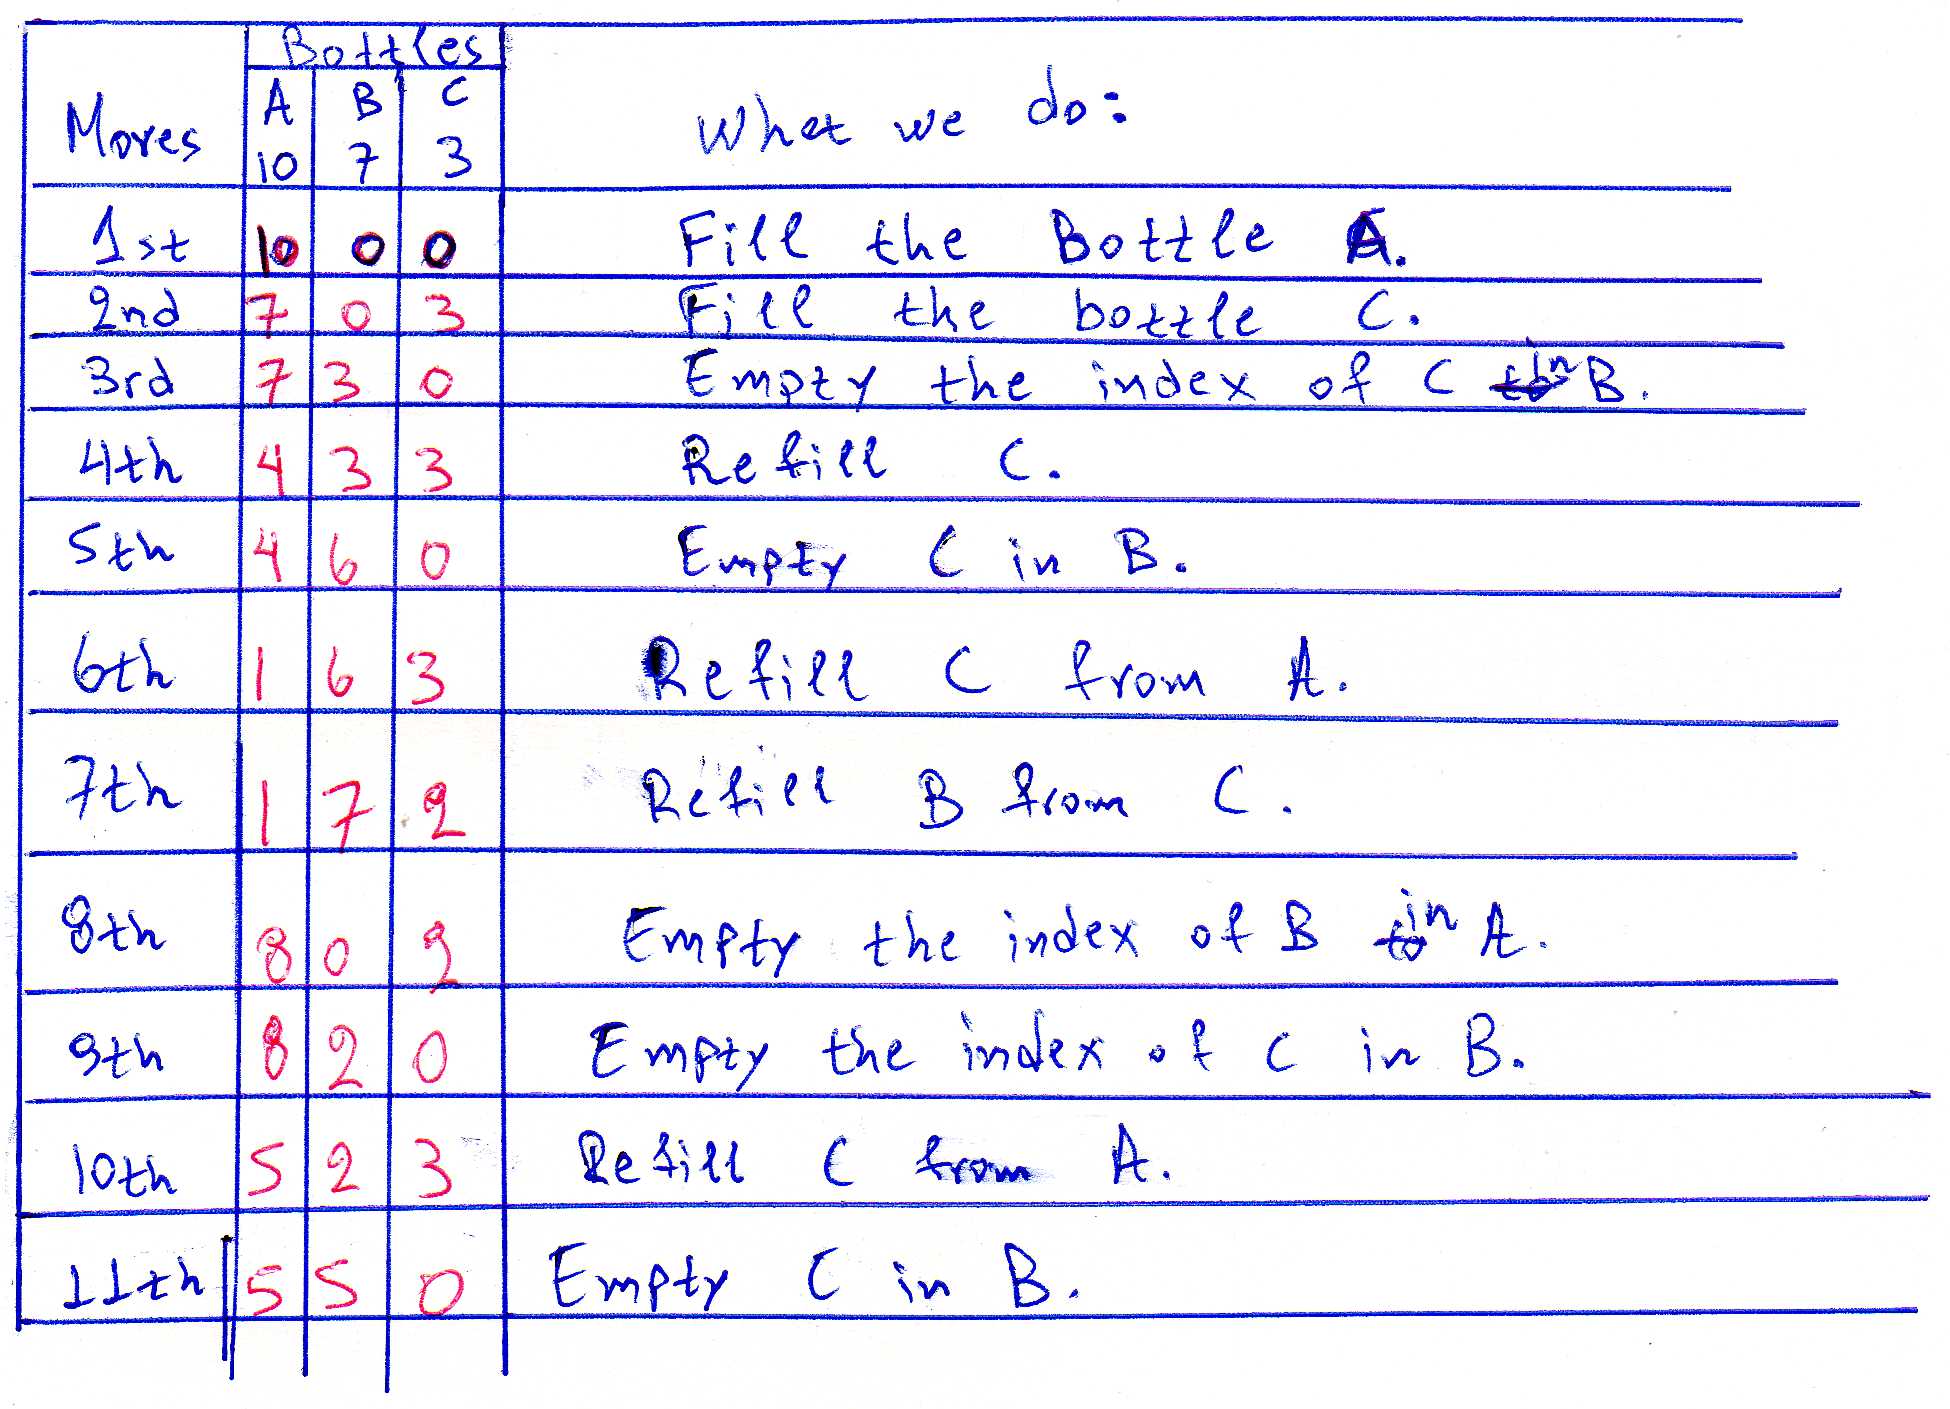 Bottles
Moves A B C What we do:
10 7 3
1st 10 0 0 Fill the Bottle A.
2nd 7 0 3 Fill the bottle C.
3rd 7 3 0 Empty the index of C in B.
4th 4 3 3 Refill C.
5th 4 6 0 Empty C in B.
6th 1 6 3 Refill C from A.
7th 1 7 2 Refill B from C.
8th 8 0 2 Empty the index of B in A.
9th 8 2 0 Empty the index of C in B.
10th 5 2 3 Refill C from A.
11th 5 5 0 Empty C in B.